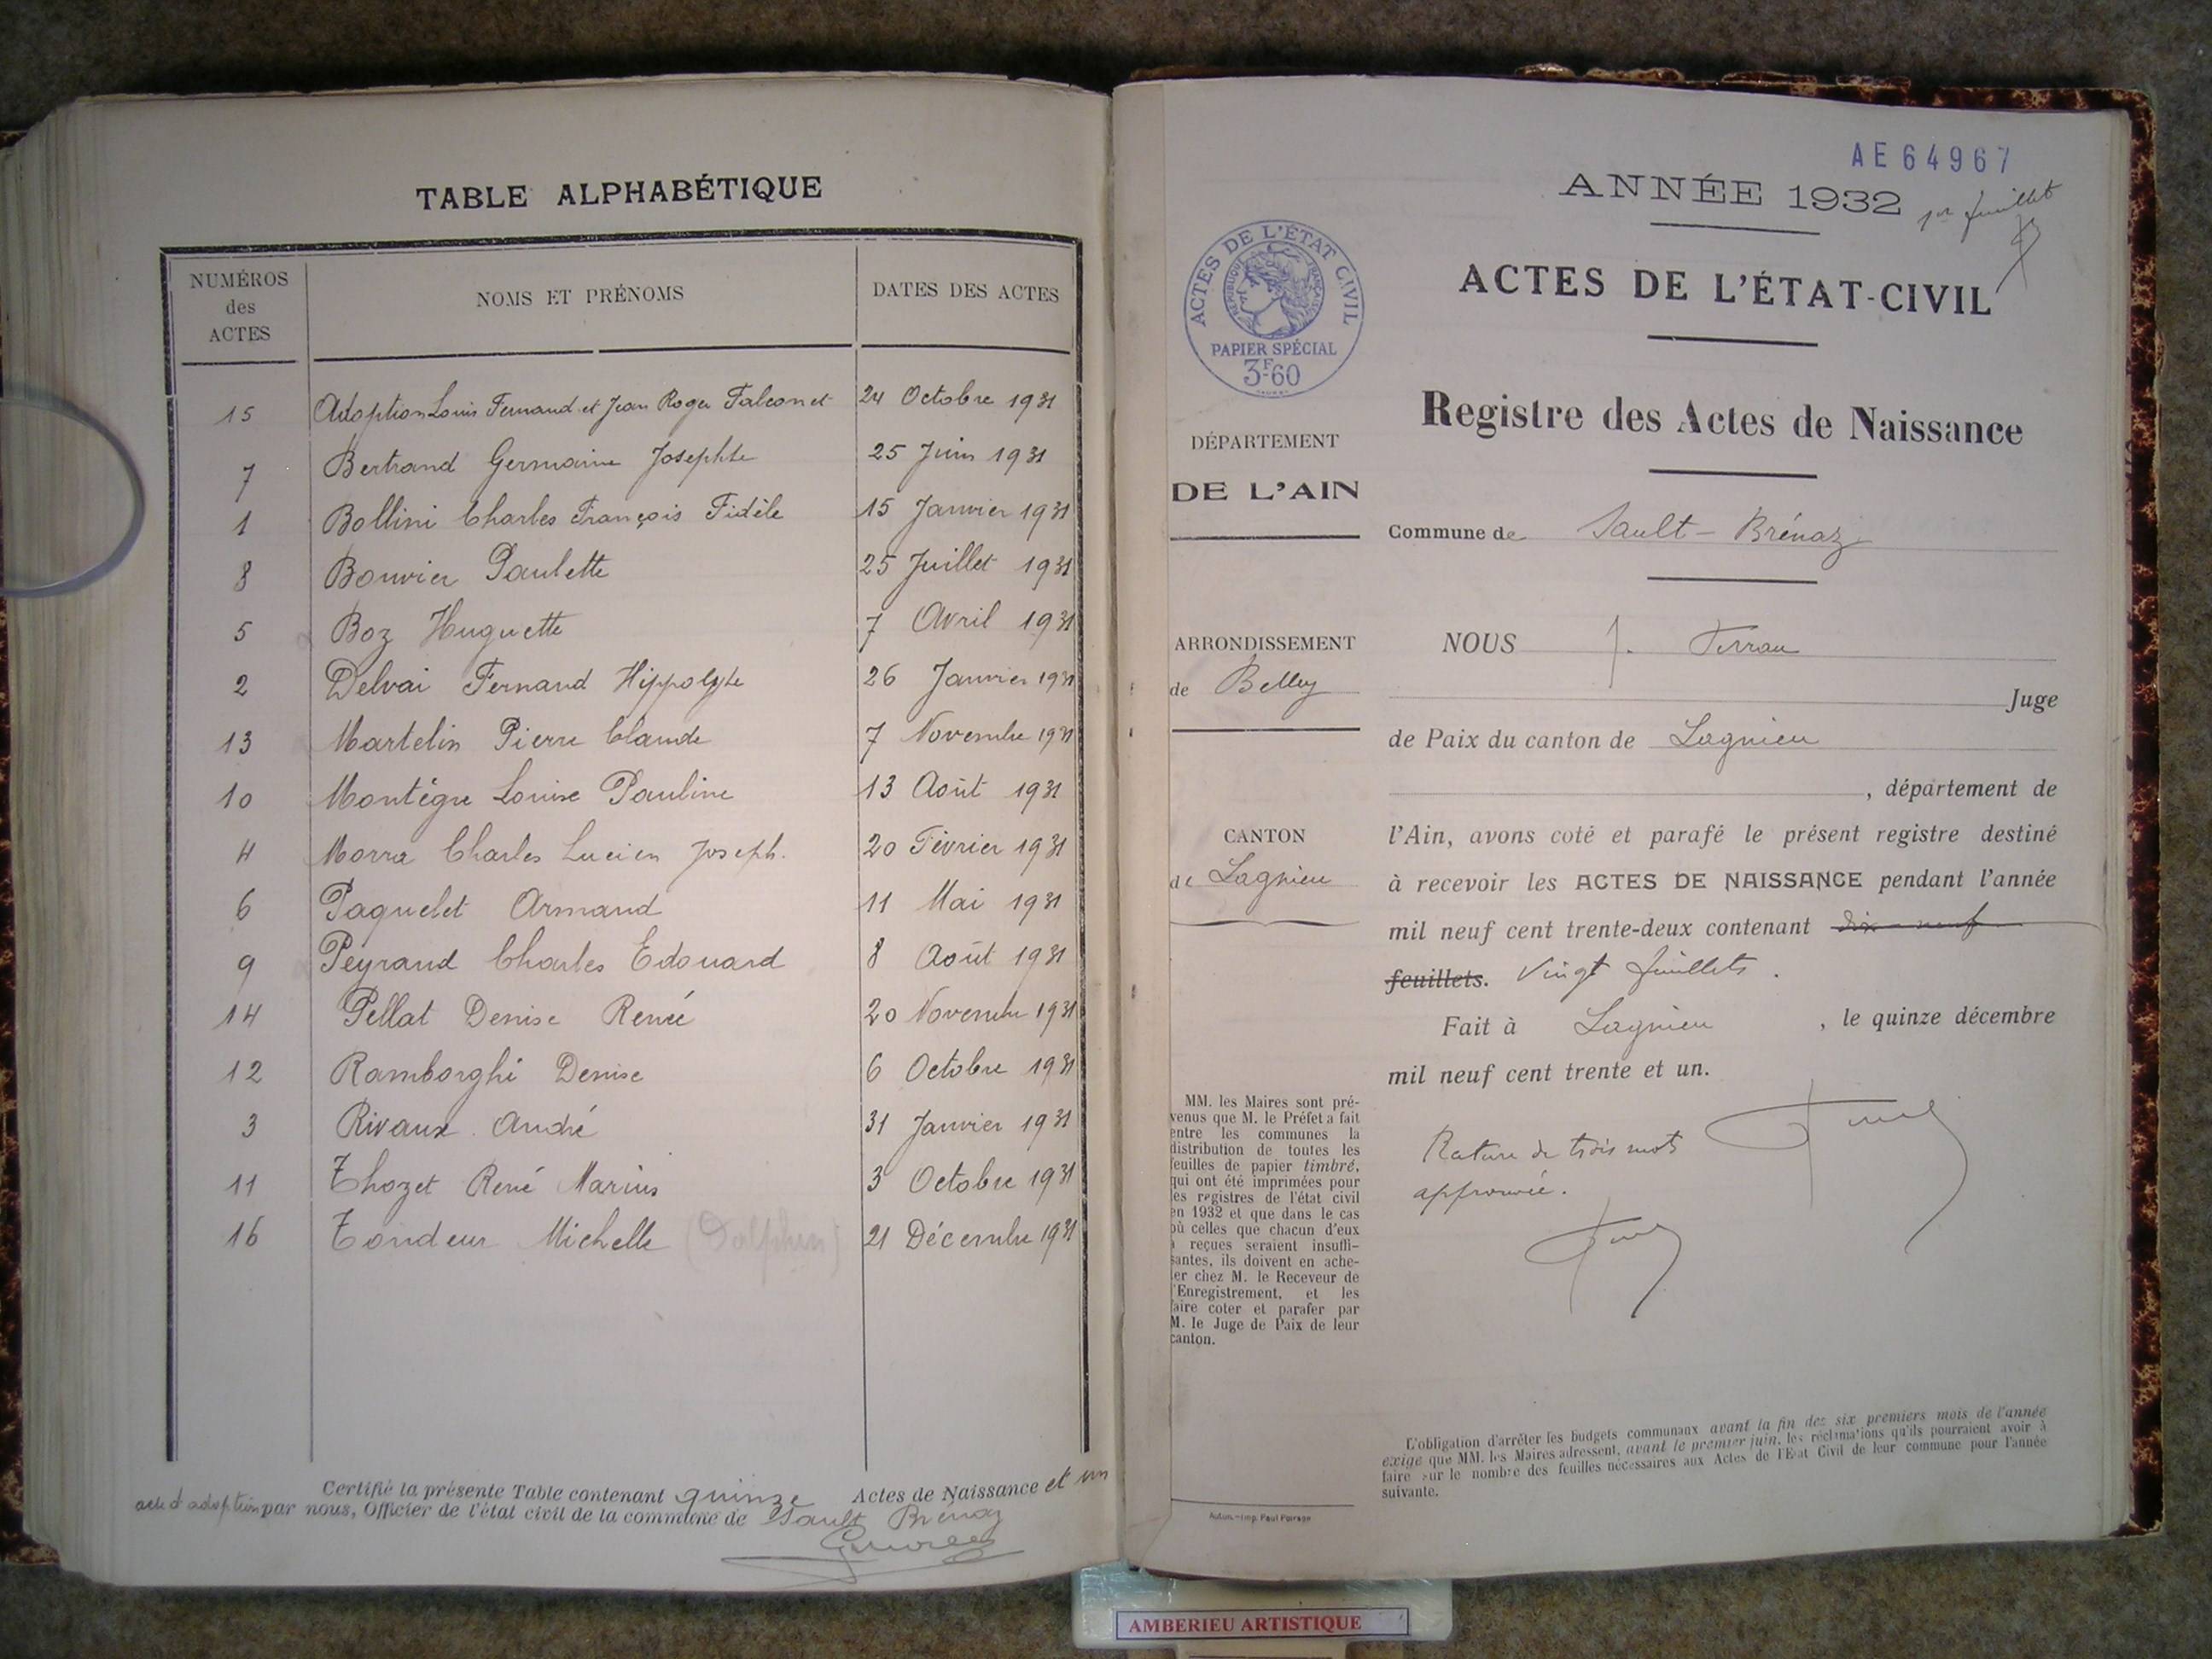 TABLE ALPHABÉTIQUE
NUMÉROS des ACTES
NOMS ET PRÉNOMS
DATES DES ACTES
15 Adoption Louis Fernand et Jean Roger Falconet 24 Octobre 1931
7 Bertrand Germaine Josephte 25 Juin 1931
1 Bollini Charles François Fidèle 15 Janvier 1931
8 Bouvier Paulette 25 Juillet 1931
5 Boz Huguette 7 Avril 1931
2 Delvai Fernand Hippolyte 26 Janvier 1931
13 Martelin Pierre Claude 7 Novembre 1931
10 Montégre Louise Pauline 13 Août 1931
4 Morra Charles Lucien Joseph. 20 Février 1931
6 Paquelet Armand 11 Mai 1931
9 Peyraud Charles Edouard 8 Août 1931
14 Pellat Denise Renée 20 Novembre 1931
12 Ramborghi Denise 6 Octobre 1931
3 Rivaux André 31 Janvier 1931
11 Thozet René Marius 3 Octobre 1931
16 Tondeur Michelle (Dalphin) 21 Décembre 1931
Certifié la présente Table contenant quinze Actes de Naissance et un
acte d'adoption par nous, Officier de l'état civil de la commune de Sault Brénaz
AE64967
ANNÉE 1932
1er feuillet
ACTES DE L'ÉTAT-CIVIL
ACTES DE L'ÉTAT CIVIL
RÉPUBLIQUE FRANÇAISE
PAPIER SPÉCIAL
3F60
Registre des Actes de Naissance
DÉPARTEMENT
DE L'AIN
Commune de Sault-Brénaz
ARRONDISSEMENT
de Belley
NOUS J. Ferran
Juge
de Paix du canton de Lagnieu
, département de
CANTON
de Lagnieu
l'Ain, avons coté et parafé le présent registre destiné
à recevoir les ACTES DE NAISSANCE pendant l'année
mil neuf cent trente-deux contenant dix-neuf
feuillets. Vingt feuillets.
Fait à Lagnieu, le quinze décembre
mil neuf cent trente et un.
Rature de trois mots
approuvée.
MM. les Maires sont pré-
venus que M. le Préfet a fait
entre les communes la
distribution de toutes les
feuilles de papier timbré,
qui ont été imprimées pour
les registres de l'état civil
en 1932 et que dans le cas
où celles que chacun d'eux
a reçues seraient insuffi-
santes, ils doivent en ache-
ter chez M. le Receveur de
l'Enregistrement, et les
faire coter et parafer par
M. le Juge de Paix de leur
canton.
L'obligation d'arrêter les budgets communaux avant la fin des six premiers mois de l'année
exige que MM. les Maires adressent, avant le premier juin, les réclamations qu'ils pourraient avoir à
faire sur le nombre des feuilles nécessaires aux Actes de l'Etat Civil de leur commune pour l'année
suivante.
Autun. — Imp. Paul Poirson
AMBERIEU ARTISTIQUE